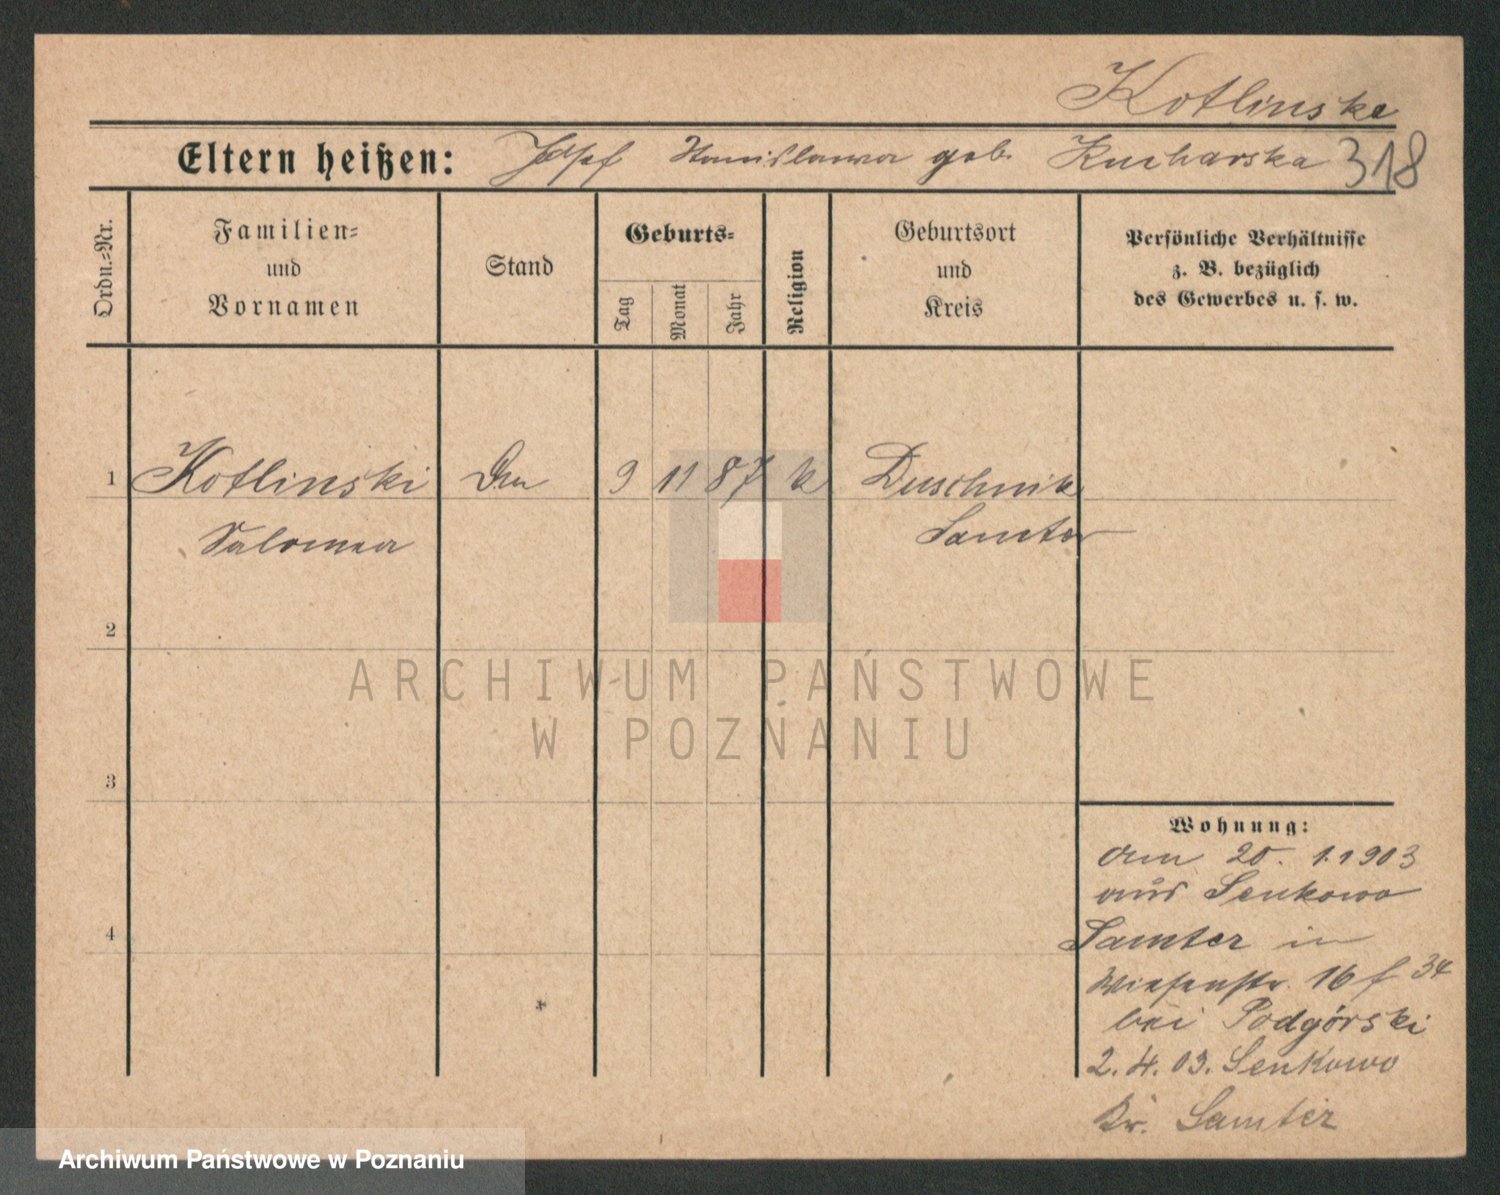 Kotlinska
Eltern heißen: Josef Stanislawa geb. Kucharska 318
Ordn.-Nr.
Familien-
und
Vornamen
Stand
Geburts-
Tag
Monat
Jahr
Religion
Geburtsort
und
Kreis
Persönliche Verhältnisse
z. B. bezüglich
des Gewerbes u. s. w.
1 Kotlinski 9 11 87 k Duschnik
Salomea Samter
2
3
4
Wohnung:
am 20. 1. 1903
aus Senkowo
Samter in
Wiesenstr. 16 f 34
bei Podgórski
2. 4. 03. Senkowo
Kr. Samter
ARCHIWUM PAŃSTWOWE
W POZNANIU
Archiwum Państwowe w Poznaniu